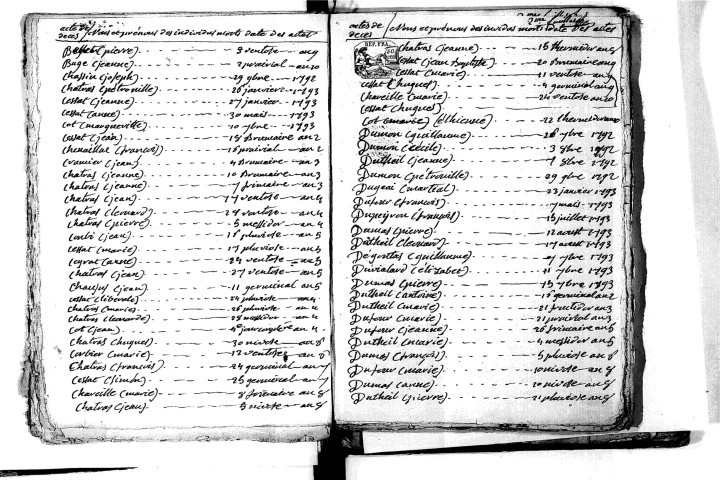 actes de deces / Noms et prénoms des individus morts date des actes
Buge (anne) - 2 prairial - an 10
Chassin (joseph) - 29 9bre - 1792
Chatras (petronille) - 26 janvier - 1793
Cessat (jeanne) - 27 janvier - 1793
Cessat (anne) - 30 mars - 1793
Cot (margueritte) - 10 7bre - 1793
Cessat (jean) - 18 Brumaire - an 2
Chenaillas (françois) - 16 prairial - an 2
Cramier (jean) - 4 Brumaire - an 3
Chatras (jeanne) - 10 Brumaire - an 3
Chatras (jeanne) - 7 frimaire - an 3
Chatras (jean) - 17 ventose - an 4
Chatras (leonard) - 27 ventose - an 4
Chatras (pierre) - 5 messidor - an 4
Combi (jean) - 18 pluviose - an 5
Cessat (marie) - 17 pluviose - an 5
Ceyrat (anne) - 24 ventose - an 5
Chatras (jean) - 27 ventose - an 5
(jean) - 11 germinal an 5
Cessat (liberale) - 24 pluviose - an 4
Chatras (marie) - 26 pluviose - an 4
Chatras (leonarde) - 28 messidor - an 4
Cot (jean)
Chatras (hugues) - 30 nivose - an 8
Corbier (marie) - 12 ventose - an 8
Chatras (françois) - 24 germinal - an 7
Cessat (simon) - 25 germinal - an 7
Chareille (marie) - 8 frimaire an 8
Chatras (jean) - 5 nivose - an 8
actes de deces / Noms et prénoms des individus morts date des actes
REP. FRA.
Chatras (jeanne) - 16 thermidor an 8
Cessat (jean Baptiste) - 20 Brumaire an 9
Cessat (marie) - 11 ventose - an 9
Cessat (hugues) - 4 germinal an 9
Chareille (marie) - 24 ventose an 10
Cessat (hugues)
Cot (Ethienne) - 22 thermidor an 10
Dumon (guillaume) - 26 7bre 1792
Dumon (Cécile) - 3 8bre 1792
Dutheil (jeanne) - 1 8bre 1792
Dumon (petronille) - 29 9bre 1792
Dugeai (martial) - 23 janvier 1793
Dufour (françois) - 7 mai - 1793
Dupeyron (françois) - 15 juillet 1793
Dumas (pierre) - 12 aoust - 1793
Dutheil (leonard) - 17 aoust - 1793
Degottas (guillaume) - 7bre 1793
Duvialard (elizabet) - 11 7bre 1793
Dumas (pierre) - 15 7bre 1793
Dutheil (antoine) - 18 germinal an 2
Dutheil (marie) - 21 fructidor an 3
Dufour (marie) - 21 prairial an 3
Dufour (jeanne) - 26 frimaire an 5
Dutheil (marie) - 4 messidor an 5
Dumas (françois) - 5 pluviose an 8
Dufour (marie) - 10 nivose an 8
Dumas (anne) - 20 nivose an 8
Dutheil (pierre) - 21 pluviose an 8